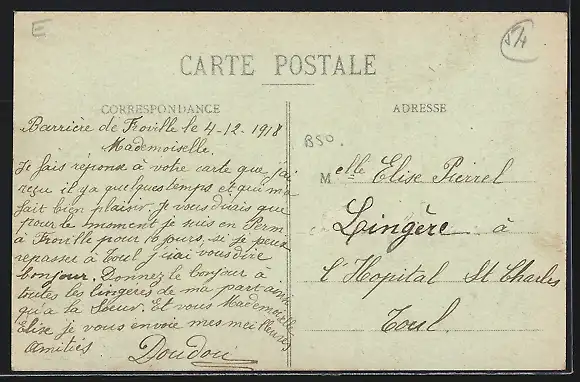 E
54
CARTE POSTALE
CORRESPONDANCE
ADRESSE
BSO.
Barrière de Froville le 4-12-1918
Mademoiselle.
Je fais réponse à votre carte que j'ai
reçu il y a quelques temps et qui m'a
fait bien plaisir. je vous dirais que
pour le moment je suis en Perm
à Froville pour 10 jours, si je peux
repasser à Toul j'irai vous dire
bonjour. Donnez le bonjour à
toutes les lingères de ma part ainsi
qu'a la Sœur. Et vous Mademoiselle
Elise je vous envoie mes meilleures
Amitiés
Doudou
Melle Elise Pierrel
Lingère à
l'Hopital St Charles
Toul.